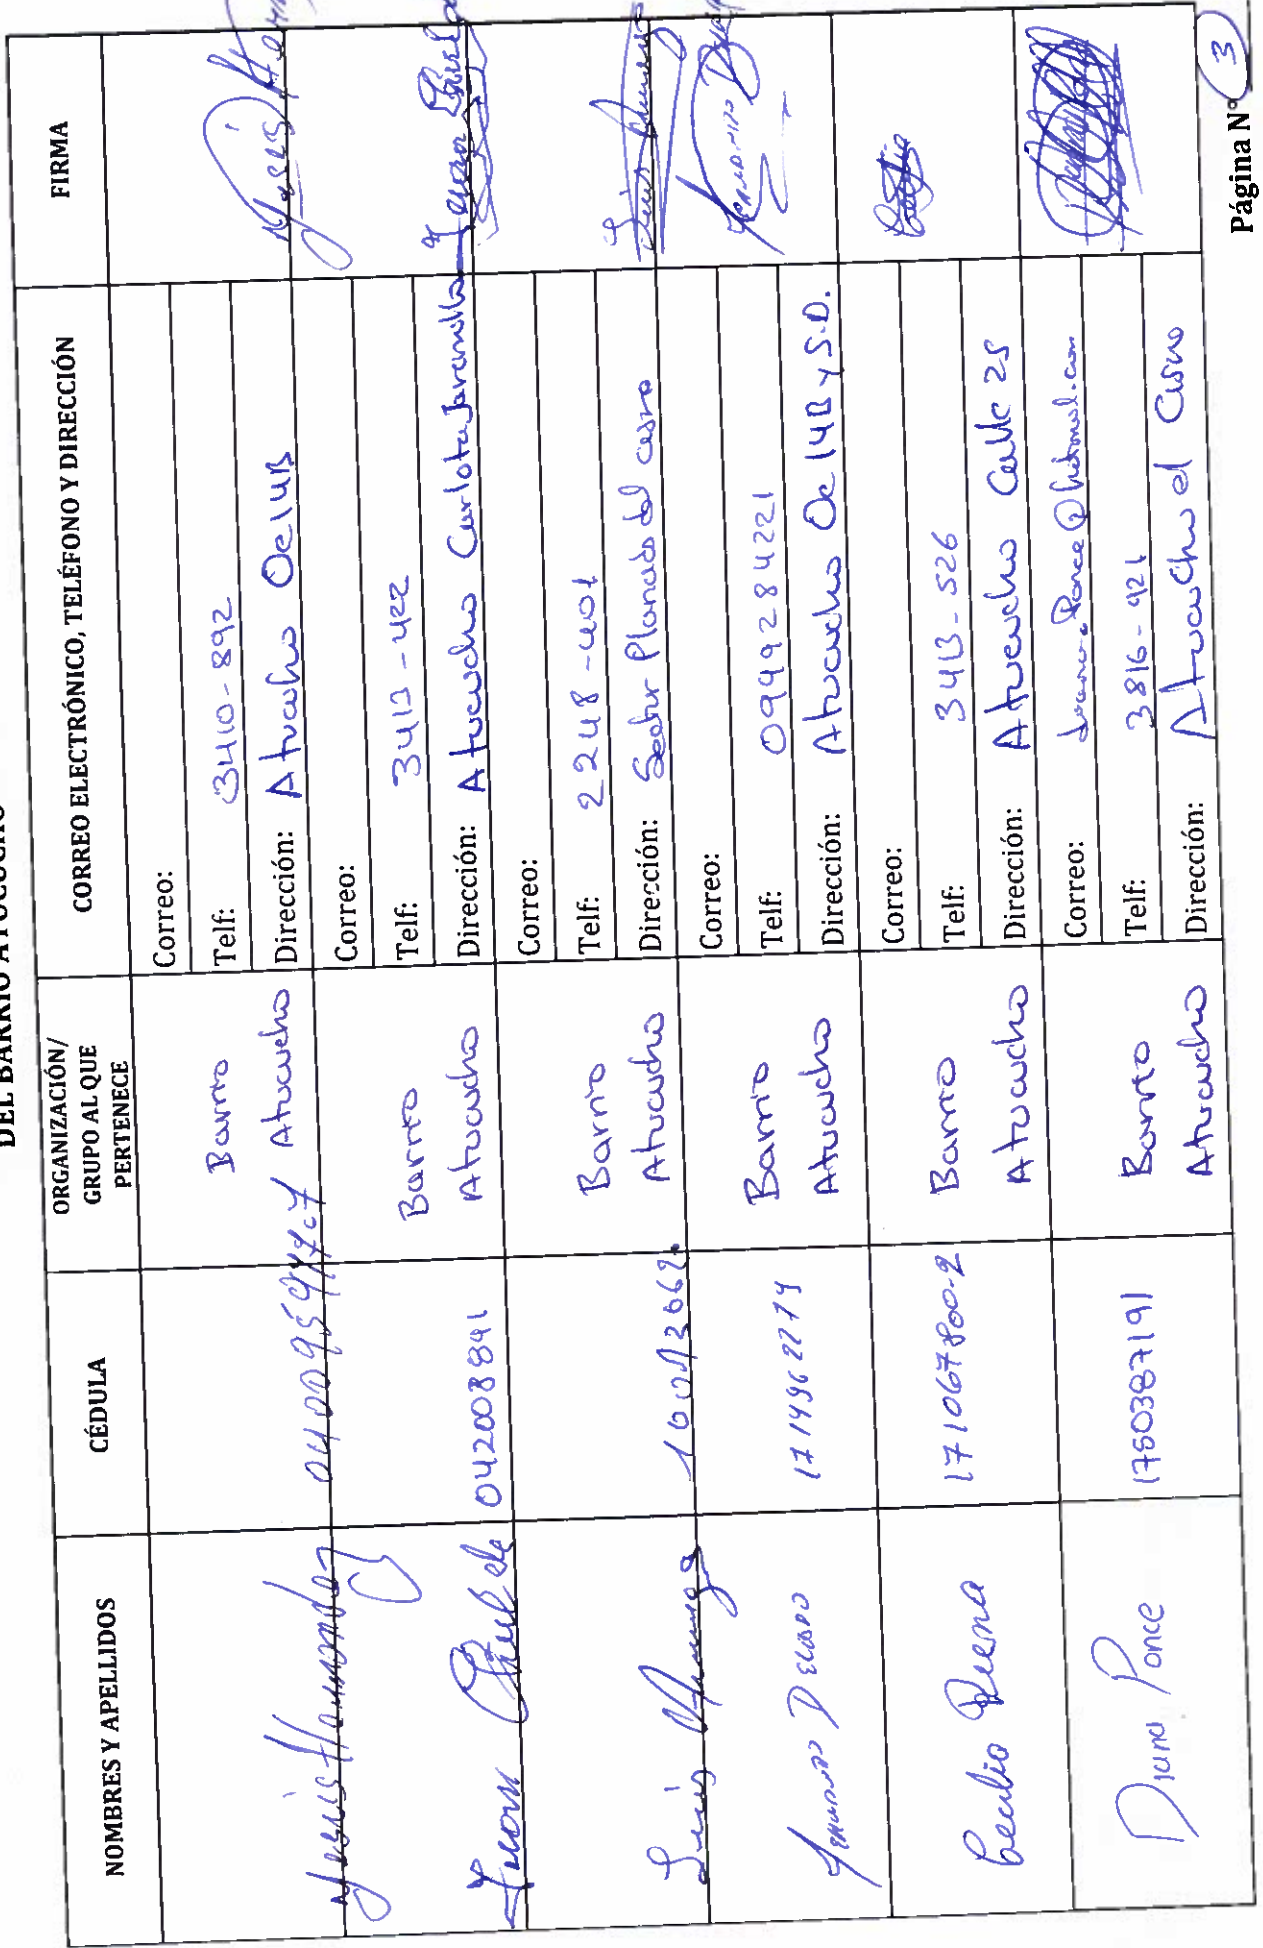 DEL BARRIO ATUCUCHO
NOMBRES Y APELLIDOS
CÉDULA
ORGANIZACIÓN/
GRUPO AL QUE
PERTENECE
CORREO ELECTRÓNICO, TELÉFONO Y DIRECCIÓN
FIRMA
Jesús Hernandez
Barrio
Atucucho
Correo:
Telf: 3410-892
Dirección: Atucucho Oe14B
042008841
Barrio
Atucucho
Correo:
Telf: 3413-422
Dirección: Atucucho Carlota Jaramillo
Luis
Barrio
Atucucho
Correo:
Telf: 2248-401
Dirección: Sector Planada del cisne
Delgado
1714962274
Barrio
Atucucho
Correo:
Telf: 0999284221
Dirección: Atucucho Oe14B y S.D.
Cecilio
171067800-2
Barrio
Atucucho
Correo:
Telf: 3413-526
Dirección: Atucucho Calle 25
Diana Ponce
1750387191
Barrio
Atucucho
Correo:
Telf: 3816-921
Dirección: Atucucho el Cisne
Página N° 3